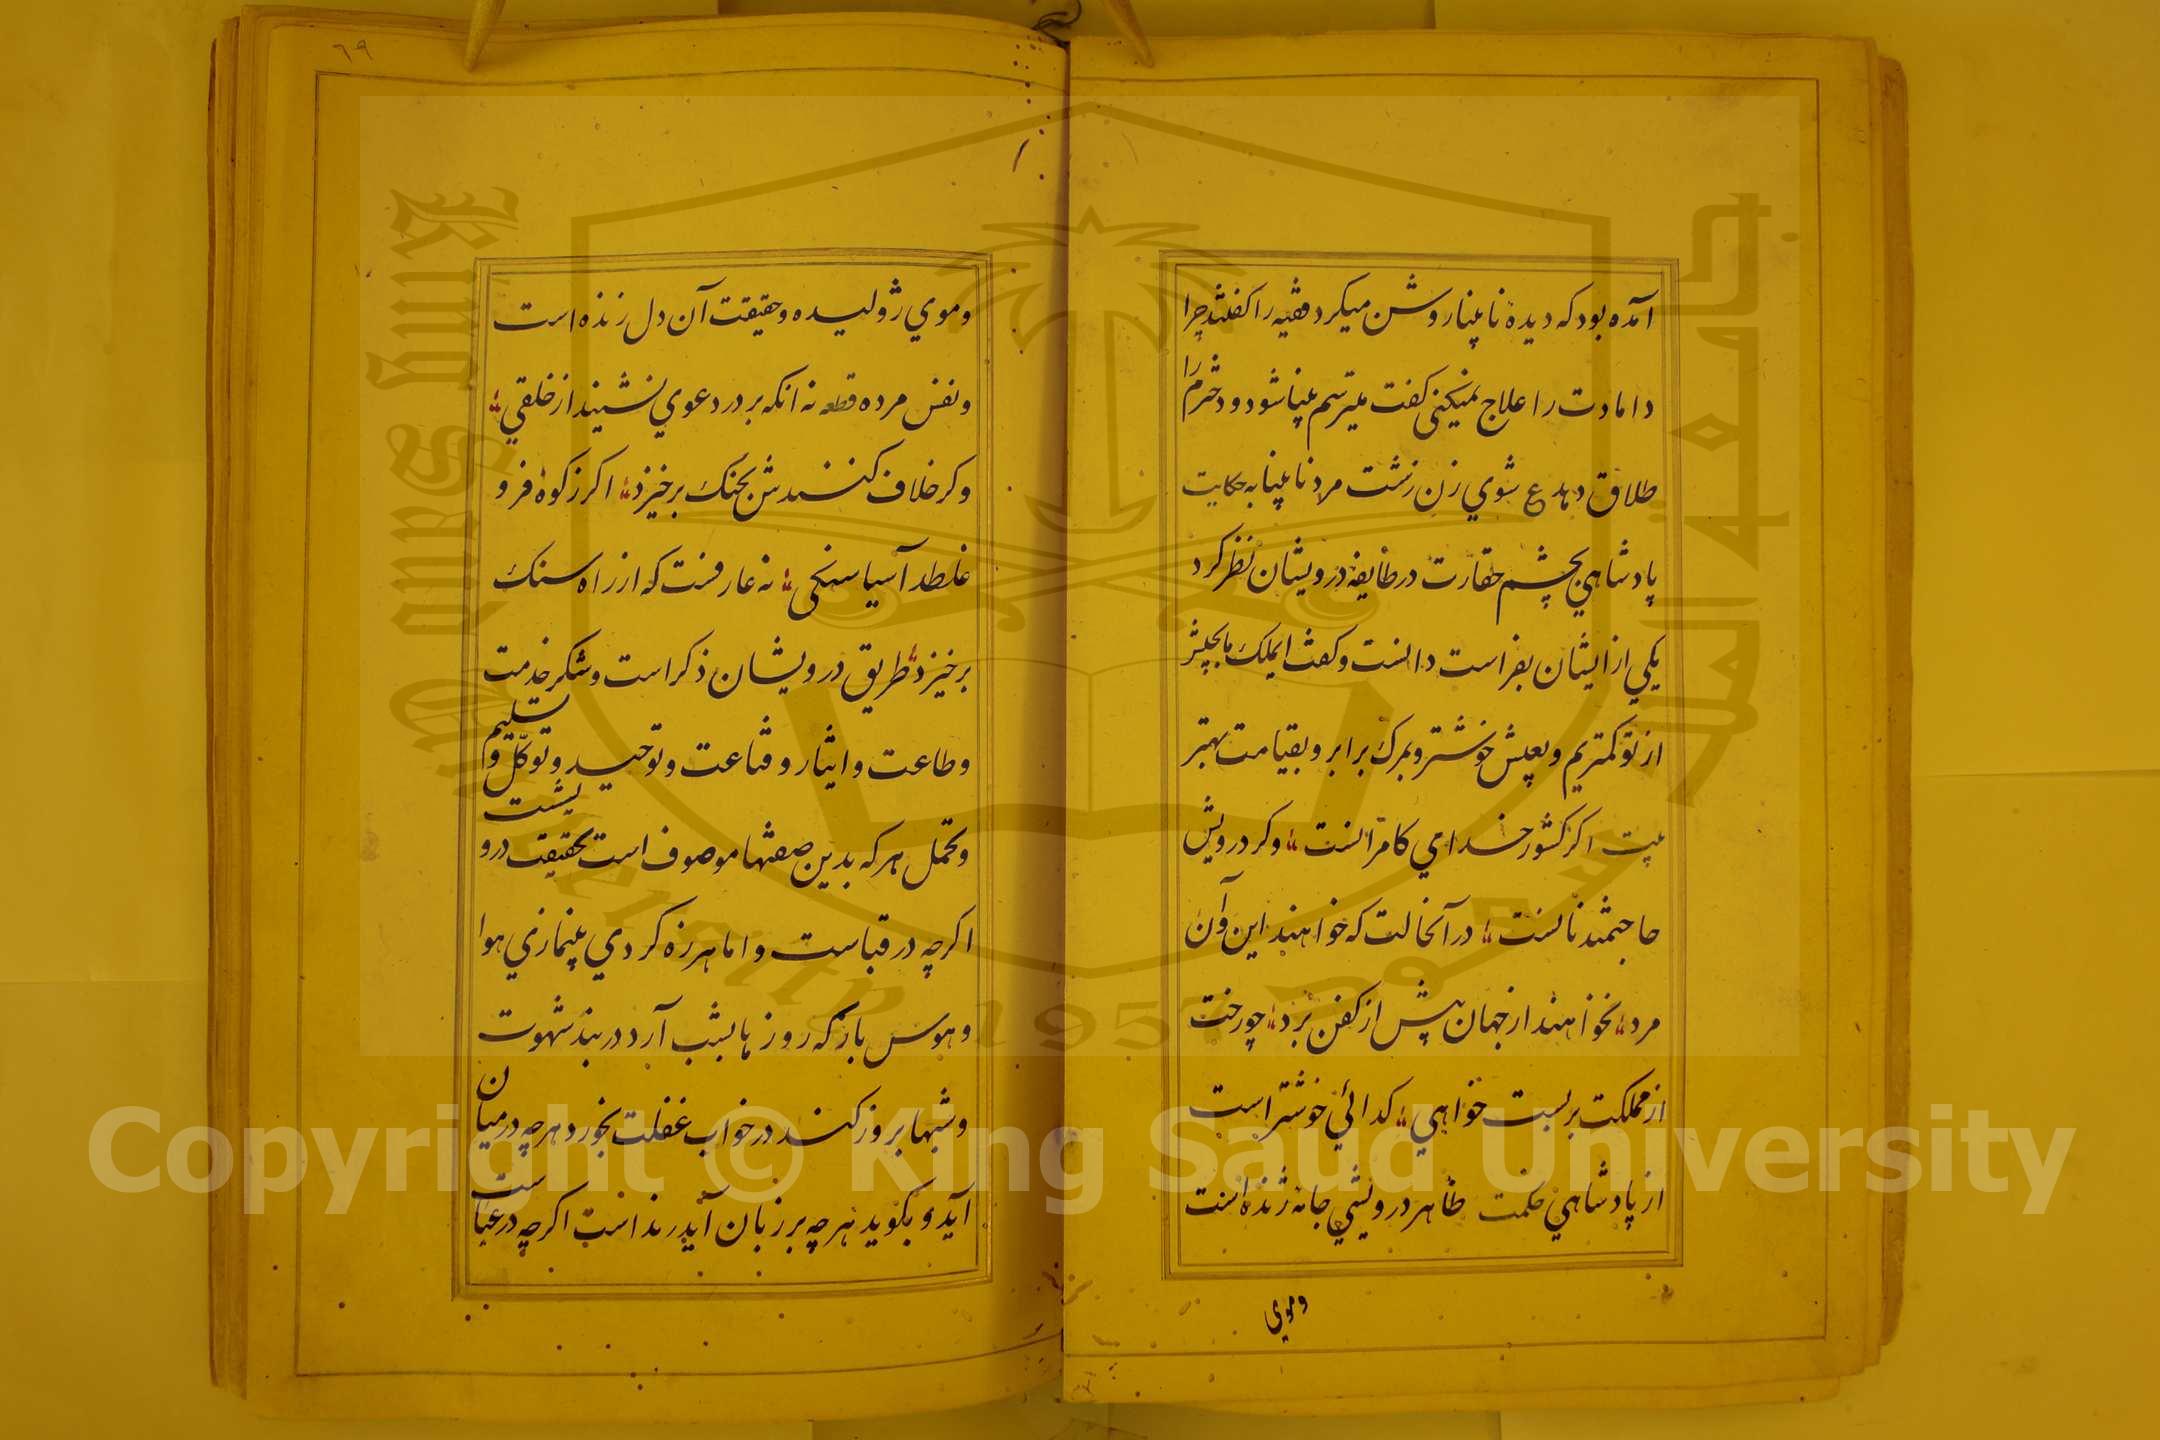 آمده بود که دیدهٔ نابینا روشن میکرد فقیه را کفتند چرا
دامادت را علاج نمیکنی کفت میترسم بینا شود و دخترم را
طلاق دهد ع شوي زن زشت مرد نابینا به حکایت
پادشاهي بچشم حقارت در طایفهٔ درویشان نظر کرد
یکي از ایشان بفراست دانست و کفت ایملک ما بجیش
از تو کمتریم و بعیش خوشتر و بمرک برابر و بقیامت بهتر
بیت اکر کشور خدامي کامرانست وکر درویش
حاجتمند نانست در آنحالت که خواهند این و آن
مرد نخواهند از جهان بیش از کفن برد چو رخت
از مملکت بربست خواهي کدائي خوشتر است
از پادشاهي حکمت ظاهر درویشي جامهٔ ژنده است
وموي
٦٩
وموي ژولیده وحقیقت آن دل زنده است
ونفس مرده قطعه نه انکه بر در دعوي نشیند از خلقي
وکر خلاف کنندش بجنک برخیزد اکر ز کوه فرو
غلطد آسیا سنکی نه عارفست که از راه سنک
برخیزد طریق درویشان ذکر است وشکر خدمت
وطاعت وایثار وقناعت وتوحید وتوکل وتسلیم
وتحمل هرکه بدین صفتها موصوفست بحقیقت درویشت
اکرچه در قباست واما هرزه کردي بینمازي هوا
وهوس باز که روزها بشب آرد در بند شهوت
وشبها بروز کند در خواب غفلت بخورد هرچه در میان
آید وبکوید هرچه بر زبان آید رند است اکرچه در عباست
Copyright © King Saud University
King Saud University 1957
جامعة الملك سعود